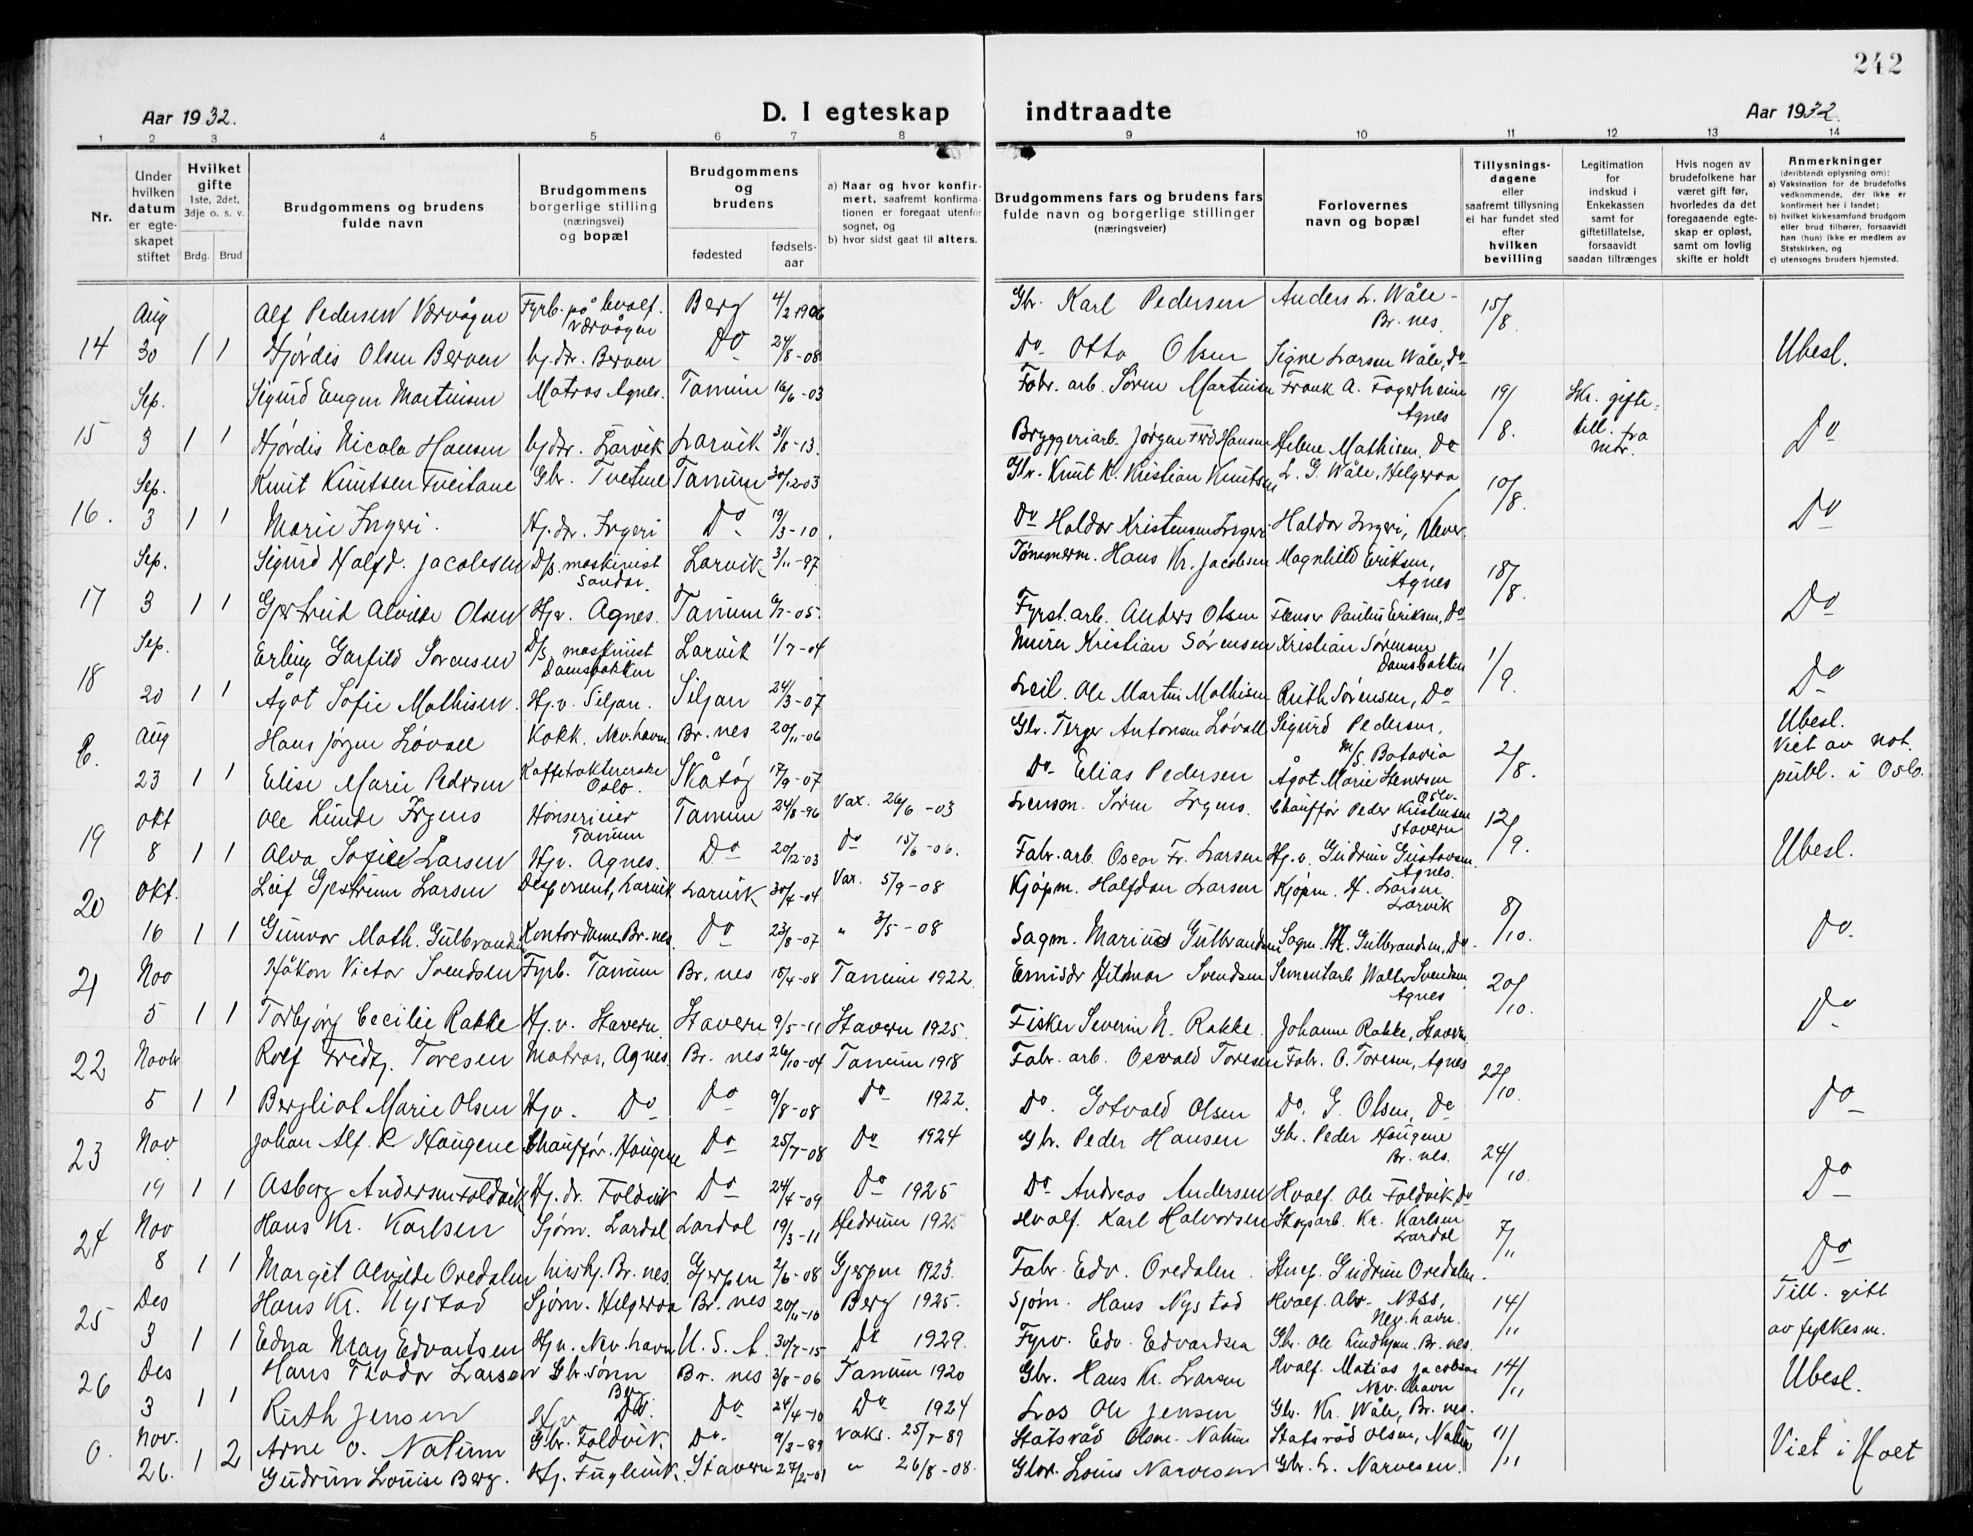 242
Aar 1932.
D. I egteskap indtraadte
Aar 1932.
1 2 3 4 5 6 7 8 9 10 11 12 13 14
Nr.
Under hvilken datum er egteskapet stiftet
Hvilket gifte 1ste, 2det, 3dje o. s. v.
Brdg. Brud
Brudgommens og brudens fulde navn
Brudgommens borgerlige stilling (næringsvei) og bopæl
Brudgommens og brudens
fødested
fødsels-aar
a) Naar og hvor konfirmert, saafremt konfirmationen er foregaat utenfor sognet, og
b) hvor sidst gaat til alters.
Brudgommens fars og brudens fars fulde navn og borgerlige stillinger (næringsveier)
Forlovernes navn og bopæl
Tillysningsdagene eller saafremt tillysning ei har fundet sted efter hvilken bevilling
Legitimation for indskud i Enkekassen samt for giftetillatelse, forsaavidt saadan tiltrænges
Hvis nogen av brudefolkene har været gift før, hvorledes da det foregaaende egteskap er opløst, samt om lovlig skifte er holdt
Anmerkninger (deriblandt oplysning om):
a) Vaksination for de brudefolks vedkommende, der ikke er konfirmert her i landet;
b) hvilket kirkesamfund brudgom eller brud tilhører, forsaavidt han (hun) ikke er medlem av Statskirken, og
c) utensogns bruders hjemsted.
Aug Alf Pedersen Værvågen Fyrb. på hvalf. Værvågen Berg 4/2 1906 Gbr. Karl Pedersen Anders L. Wåle Br. nes. 15/8.
14 30 1 1 Hjørdis Olsen Berven hj. dtr. Berven Do 24/8-08 Do Otto Olsen Signe Larsen Wåle, Do Ubesl.
Sep. Sigurd Eugen Martinsen Matros Agnes. Tanum 16/6-03 Fabr. arb. Søren Martinsen Frank A. Fagerheim Agnes 19/8. Skr. gifte-till. fra mor.
15 3 1 1 Hjørdis Nicola Hansen hj. dtr. Larvik Larvik 31/8-13. Bryggeriarb. Jørgen Fred Hansen Helene Mathisen. Do Do
Sep. Knut Knutsen Tveitane Gbr. Tvetene Tanum 30/12-03 Gbr. Knut K. Kristian Knutsen L. G. Wåle, Helgeroa 10/8
16. 3 1 1 Marie Ingeri. Hj. dr. Ingeri Do 19/3-10. Do Haldor Kristensen Ingeri Haldor Ingeri, Do
Sep. Sigurd Halfd. Jacobsen D/s. maskinist Sandar. Larvik 3/11-97 Tømmerm. Hans Kr. Jacobsen Magnhild Eriksen, Agnes 18/8.
17 3 1 1 Gjertrud Alvilde Olsen Hj.v. Agnes. Tanum 6/7-05. Fyrst. arb. Anders Olsen Flenser Paulus Eriksen, Do Do
Sep. Erling Garfild Sørensen D/s maskinist Damsbakken Larvik 1/7-04 Murer Kristian Sørensen Kristian Sørensen Damsbakken 1/9.
18 20 1 1 Ågot Sofie Mathisen. Hj.v. Siljan. Siljan 24/3-07 Leil. Ole Martin Mathisen Ruth Sørensen, Do Do
Aug Hans Jørgen Løvall Kokk. Nev.havn Br. nes 20/11-06 Gbr. Terger Antonsen Løvall Sigurd Pedersen, M/S. Batavia 2/8. Ubesl. Viet av not. publ. i Oslo.
23 1 1 Elise Marie Pedersen Kaffekokterske Oslo. Skåtøy 17/9-07 Do Elias Pedersen Ågot Marie Oslo
Okt Ole Lunde Irgens Hønserieier Tanum Tanum 24/8-96 Vax. 26/6-03 Svensom. Søren Irgens. Chauffør Peder Kristensen Stavern 12/9.
19 8 1 1 Alva Sofie Larsen Hj.v. Agnes. Do 20/12-03 Do 15/6-06. Fabr. arb. Oscar Fr. Larsen Hj.v. Gudrun Gustavsen. Agnes. Ubesl.
20 Okt. Leif Gjestrum Larsen Disponent, Larvik Larvik 30/4-04 Vax. 5/9-08 Kjøpm. Halfdan Larsen Kjøpm. H. Larsen Larvik 8/10.
16 1 1 Gunvor Math. Gulbrandsen Kontordame Br.nes. Do 23/8-07 " 3/5-08 Sagm. Marius Gulbrandsen Sagm. M. Gulbrandsen, Do Do.
21 Nov Håkon Victor Svendsen Fyrb. Tanum Br. nes 15/4-08 Tanum 1922. Hilmar Svendsen Sementarb Walter Svendsen Agnes 20/10.
5 1 1 Torbjørg Cecilie Rakke Hj.v. Stavern Stavern 9/5-11 Stavern 1925. Fisker Severin N. Rakke. Johanne Rakke, Stavern Do
22 Novbr Rolf Fredtj. Toresen Matros, Agnes. Br. nes 26/10-04 Tanum 1918 Fabr. arb. Osvald Toresen Fabr. O. Toresen, Agnes 22/10.
5 1 1 Bergliot Marie Olsen Hj.v. Do Do 9/8-08 Do 1922. Do. Gotvald Olsen Do. G. Olsen, Do Do
23 Nov. Johan Alf. R Haugene Chauffør. Haugene Do 25/7-08 Do 1924 Gbr. Peder Hansen Gbr. Peder Haugene Br. nes. 24/10.
19 1 1 Asberg Andersen Foldvik Hj. dr. Foldvik Do 24/4-09 Do 1925 Do Andreas Andersen Hvalf. Ole Foldvik Do Do
24 Nov Hans Kr. Karlsen Sjøm. Lardal Lardal 19/3-11 Hedrum 1925 Hvalf. Karl Halvorsen Skogsarb. Kr. Karlsen Lardal 7/11
8 1 1 Margit Alvilde Oredalen hush. Br. nes. Gjerpen 2/6-08 Gjerpen 1923. Fabr. Edv. Oredalen. Gudrun Oredalen. Do
25 Des Hans Kr. Nystad Sjøm. Helgeroa Br. nes 20/11-10 Berg 1925. Sjøm. Hans Nystad Hvalf. Alv. Næss, Nev.havn. 14/11 Till. gitt av fylkesm.
3 1 1 Edna May Edvartsen Hj.v. Nev.havn U. S. A. 30/7-15 Do 1929. Fyrv. Edv. Edvardsen Gbr. Ole Lindhjem. Br. nes.
26 Des Hans Thodor Larsen Gbr. sønn Berg Br. nes 3/8-06 Tanum 1920 Gbr. Hans Kr. Larsen Hvalf. Matias Jacobsen Nev. havn 14/11 Ubesl.
3 1 1 Ruth Jensen Hj.v Do. Do 24/4-10 Do 1924 Los Ole Jensen Gbr. Kr. Wåle, Br. nes.
0. Nov. Arne O. Nalum Gbr. Foldvik. Do. 9/3-89 Vaks. 25/7-89 Statsråd Olsen Nalum Statsråd Olsen, Nalum 11/11 Viet i Hoet
26. 1 2 Gudrun Louise Berg. Hj. Fuglevik. Stavern 27/2-01 " 26/8-08. Gbr. Louis Narvesen Gbr. L. Narvesen.